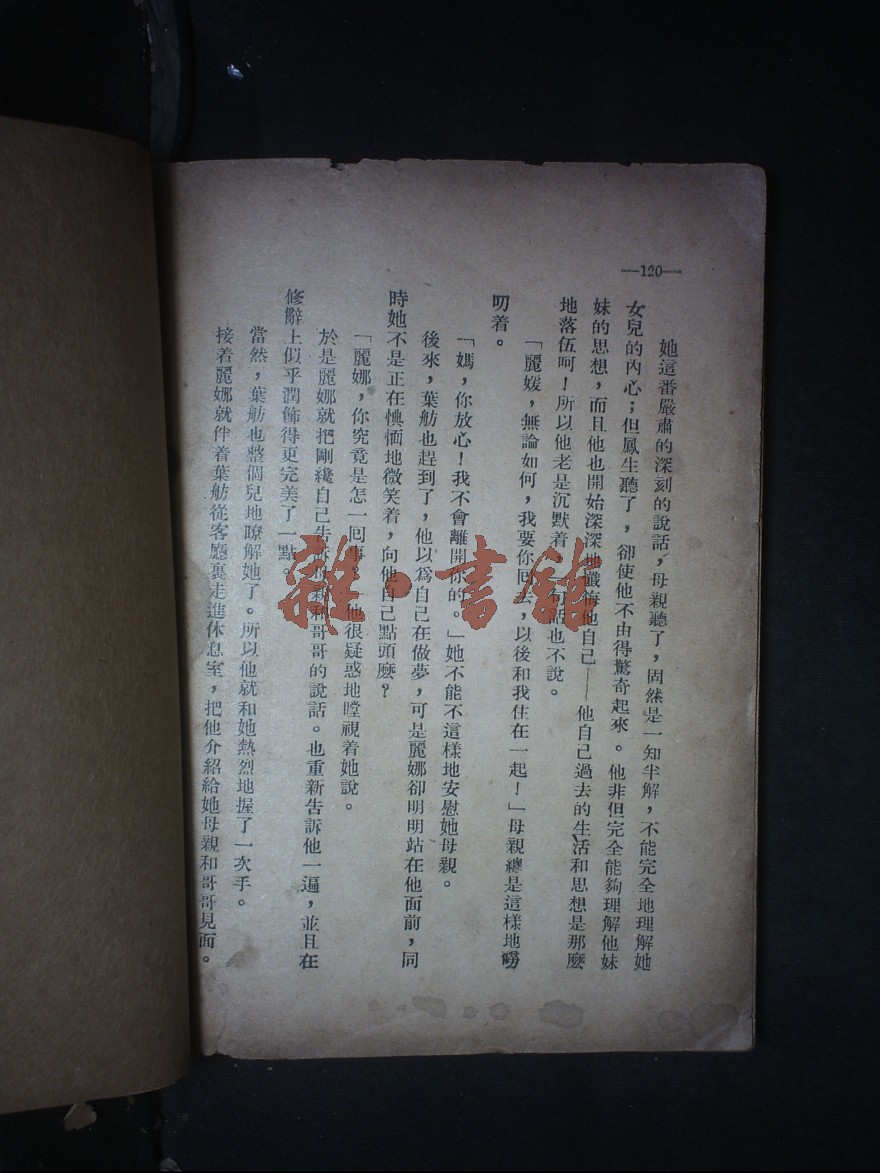 —120—
她這番嚴肅的深刻的說話，母親聽了，固然是一知半解，不能完全地理解她
女兒的內心；但鳳生聽了，卻使他不由得驚奇起來。他非但完全能夠理解他妹
妹的思想，而且他也開始深深地懺悔他自己——他自己過去的生活和思想是那麼
地落伍呵！所以他老是沉默着，句話也不說。
「麗媛，無論如何，我要你回去，以後和我住在一起！」母親總是這樣地嘮
叨着。
「媽，你放心！我不會離開你的。」她不能不這樣地安慰她母親。
後來，葉舫也趕到了，他以爲自己在做夢，可是麗娜卻明明站在他面前，同
時她不是正在愼恓地微笑着，向他自己點頭麼？
「麗娜，你究竟是怎一回事？他很疑惑地瞠視着她說。
於是麗娜就把剛纔自己告訴和哥哥的說話。也重新告訴他一遍，並且在
修辭上似乎潤飾得更完美了一點。
當然，葉舫也整個兒地瞭解她了。所以他就和她熱烈地握了一次手。
接着麗娜就伴着葉舫從客廳裏走進休息室，把他介紹給她母親和哥哥見面。
雜·書館